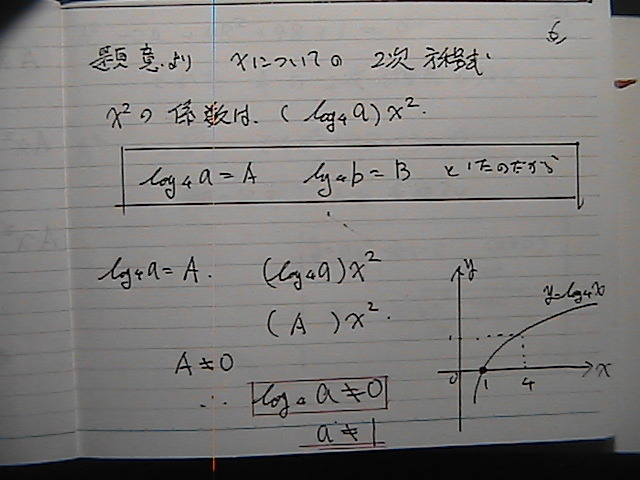 6
題意より xについての 2次方程式
x²の係数は、(log₄a)x².
log₄a=A log₄b=B といたのだから
log₄a=A. (log₄a)x²
(A )x².
A≠0
∴ log₄a≠0
a≠1
y
y=log₄x
0 1 4 x